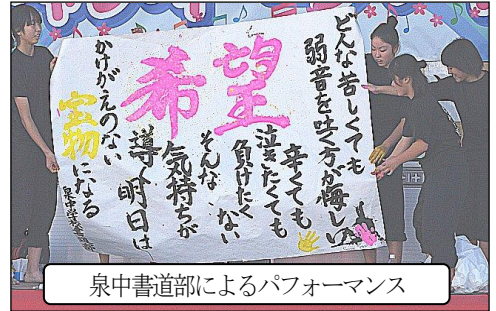 どんな苦しくても
弱音を吐く方が悔しい
辛くても
泣きたくても
負けたくない
そんな
気持ちが
希望
導く明日は
かけがえのない
宝物になる
泉中学校書道部
泉中書道部によるパフォーマンス